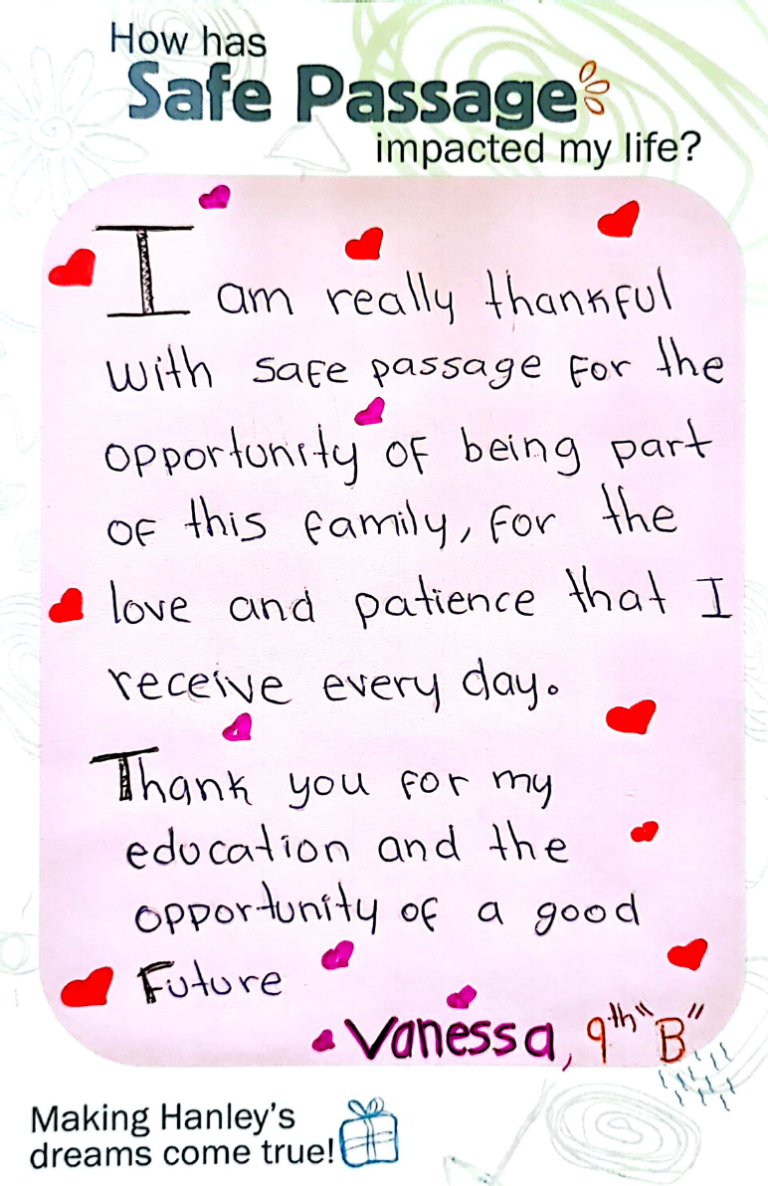 How has
Safe Passage
impacted my life?
I am really thankful
with safe passage for the
opportunity of being part
of this family, for the
love and patience that I
receive every day.
Thank you for my
education and the
opportunity of a good
Future
Vanessa, 9th "B"
Making Hanley's
dreams come true!